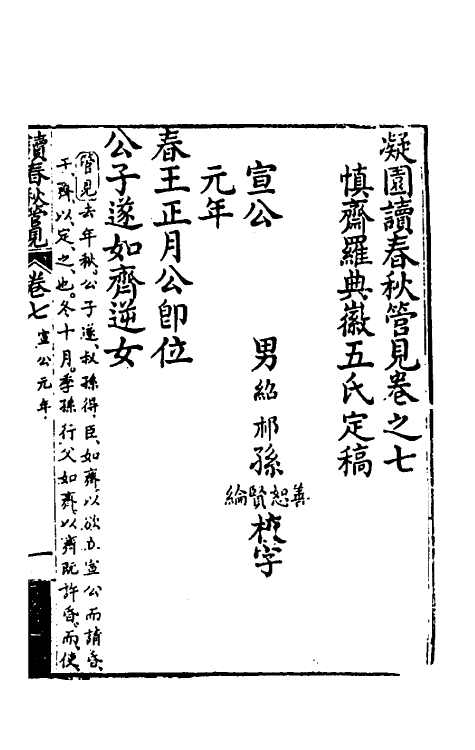 凝園讀春秋管見卷之七
慎齋羅典徽五氏定稿
男紹祁孫善恕賢綸校字
宣公
元年
春王正月公卽位
公子遂如齊逆女
管見去年秋公子遂叔孫得臣如齊以欲立宣公而請昏
于齊以定之也冬十月季孫行父如齊以齊既許昏而使
讀春秋管見
卷七
宣公元年
一